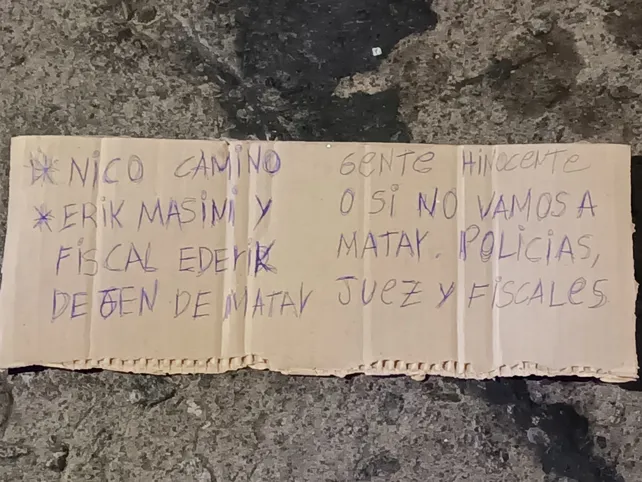 * NiCO CAMiNO
* ERiK MASiNi Y
FiSCAL EDERiK
DEJEN DE MATAr
GENTE HiNOCENTE
O Si NO VAMOS A
MATAr. POLiCiAS,
JUEZ Y FiSCALES